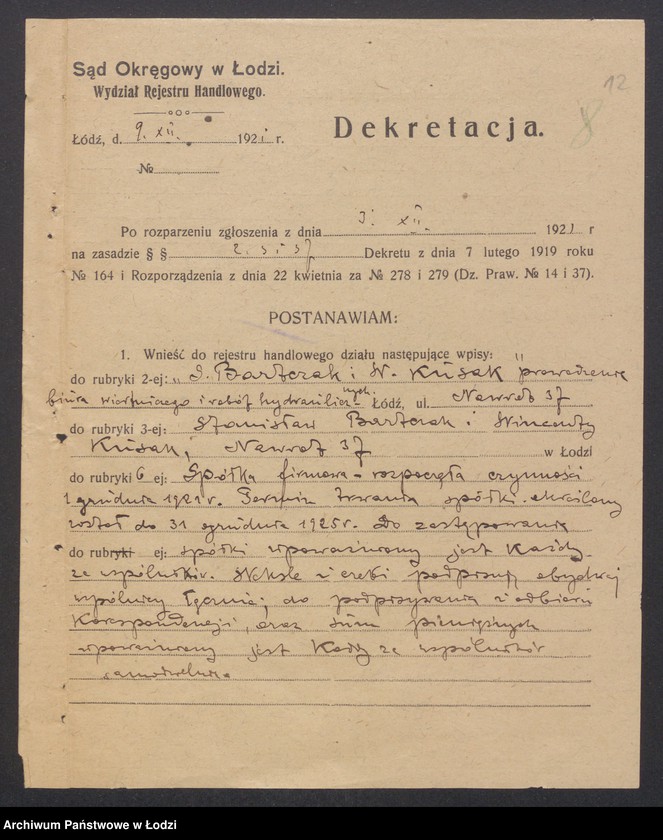 12
Sąd Okręgowy w Łodzi.
Wydział Rejestru Handlowego.
8
Dekretacja.
Łódź, d. 9. XII. 1921 r.
№
Po rozparzeniu zgłoszenia z dnia 3. XII. 1921 r
na zasadzie § § 2. 3 i 37 Dekretu z dnia 7 lutego 1919 roku
№ 164 i Rozporządzenia z dnia 22 kwietnia za № 278 i 279 (Dz. Praw. № 14 i 37).
POSTANAWIAM:
1. Wnieść do rejestru handlowego działu następujące wpisy:
do rubryki 2-ej: „S. Bartczak i W. Kusak" prowadzenie
biura wiertniczego i robót hydraulicznych. Łódź, ul. Nawrot 37
do rubryki 3-ej: Stanisław Bartczak i Wincenty
Kusak, Nawrot 37 w Łodzi
do rubryki 6 ej: Spółka firmowa - rozpoczęła czynności
1 grudnia 1921 r. Termin trwania spółki określony
został do 31 grudnia 1925 r. Do zastępowania
do rubryki ej: spółki upoważniony jest każdy
ze wspólników. Weksle i czeki podpisują obydwaj
wspólnicy łącznie; do podpisywania i odbioru
korespondencji, oraz sum pieniężnych
upoważniony jest każdy ze wspólników
samodzielnie.
Archiwum Państwowe w Łodzi